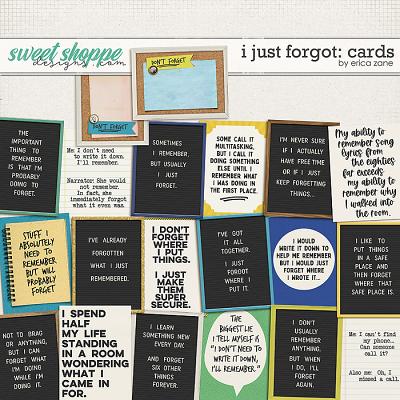 sweet shoppe
designs.com
i just forgot: cards
by erica zane
DON'T FORGET
DON'T FORGET
THE
IMPORTANT
THING TO
REMEMBER
IS THAT I'M
PROBABLY
GOING TO
FORGET.
Me: I don't need
to write it down.
I'll remember.
Narrator: She would
not remember.
In fact, she
immediately forgot
what it even was.
SOMETIMES
I REMEMBER,
BUT USUALLY
I JUST
FORGET.
SOME CALL IT
MULTITASKING,
BUT I CALL IT
DOING SOMETHING
ELSE UNTIL I
REMEMBER WHAT
I WAS DOING IN
THE FIRST PLACE.
I'M NEVER SURE
IF I ACTUALLY
HAVE FREE TIME
OR IF I JUST
KEEP FORGETTING
THINGS...
My ability to
remember song
lyrics from
the eighties
far exceeds
my ability to
remember why
I walked into
the room.
STUFF I
ABSOLUTELY
NEED TO
REMEMBER,
BUT WILL
PROBABLY
FORGET
I'VE ALREADY
FORGOTTEN
WHAT I JUST
REMEMBERED.
I DON'T
FORGET
WHERE
I PUT
THINGS.
I JUST
MAKE
THEM
SUPER
SECURE.
I'VE GOT
IT ALL
TOGETHER.
I JUST
FORGOT
WHERE I
PUT IT.
I WOULD
WRITE IT DOWN TO
HELP ME REMEMBER
BUT I WOULD JUST
FORGET WHERE
I WROTE IT...
I LIKE TO
PUT THINGS
IN A SAFE
PLACE AND
THEN FORGET
WHERE THAT
SAFE PLACE IS.
NOT TO BRAG
OR ANYTHING,
BUT I CAN
FORGET WHAT
I'M DOING
WHILE I'M
DOING IT.
I SPEND
HALF
MY LIFE
STANDING
IN A ROOM
WONDERING
WHAT I
CAME IN
FOR.
I LEARN
SOMETHING NEW
EVERY DAY,
AND FORGET
SIX OTHER
THINGS
FOREVER.
THE
BIGGEST LIE
I TELL MYSELF IS
"I DON'T NEED TO
WRITE IT DOWN,
I'LL REMEMBER."
I DON'T
USUALLY
REMEMBER
ANYTHING,
BUT WHEN
I DO, I'LL
FORGET
AGAIN.
Me: I can't find
my phone..
Can someone
call it?
Also me: Oh, I
missed a call.